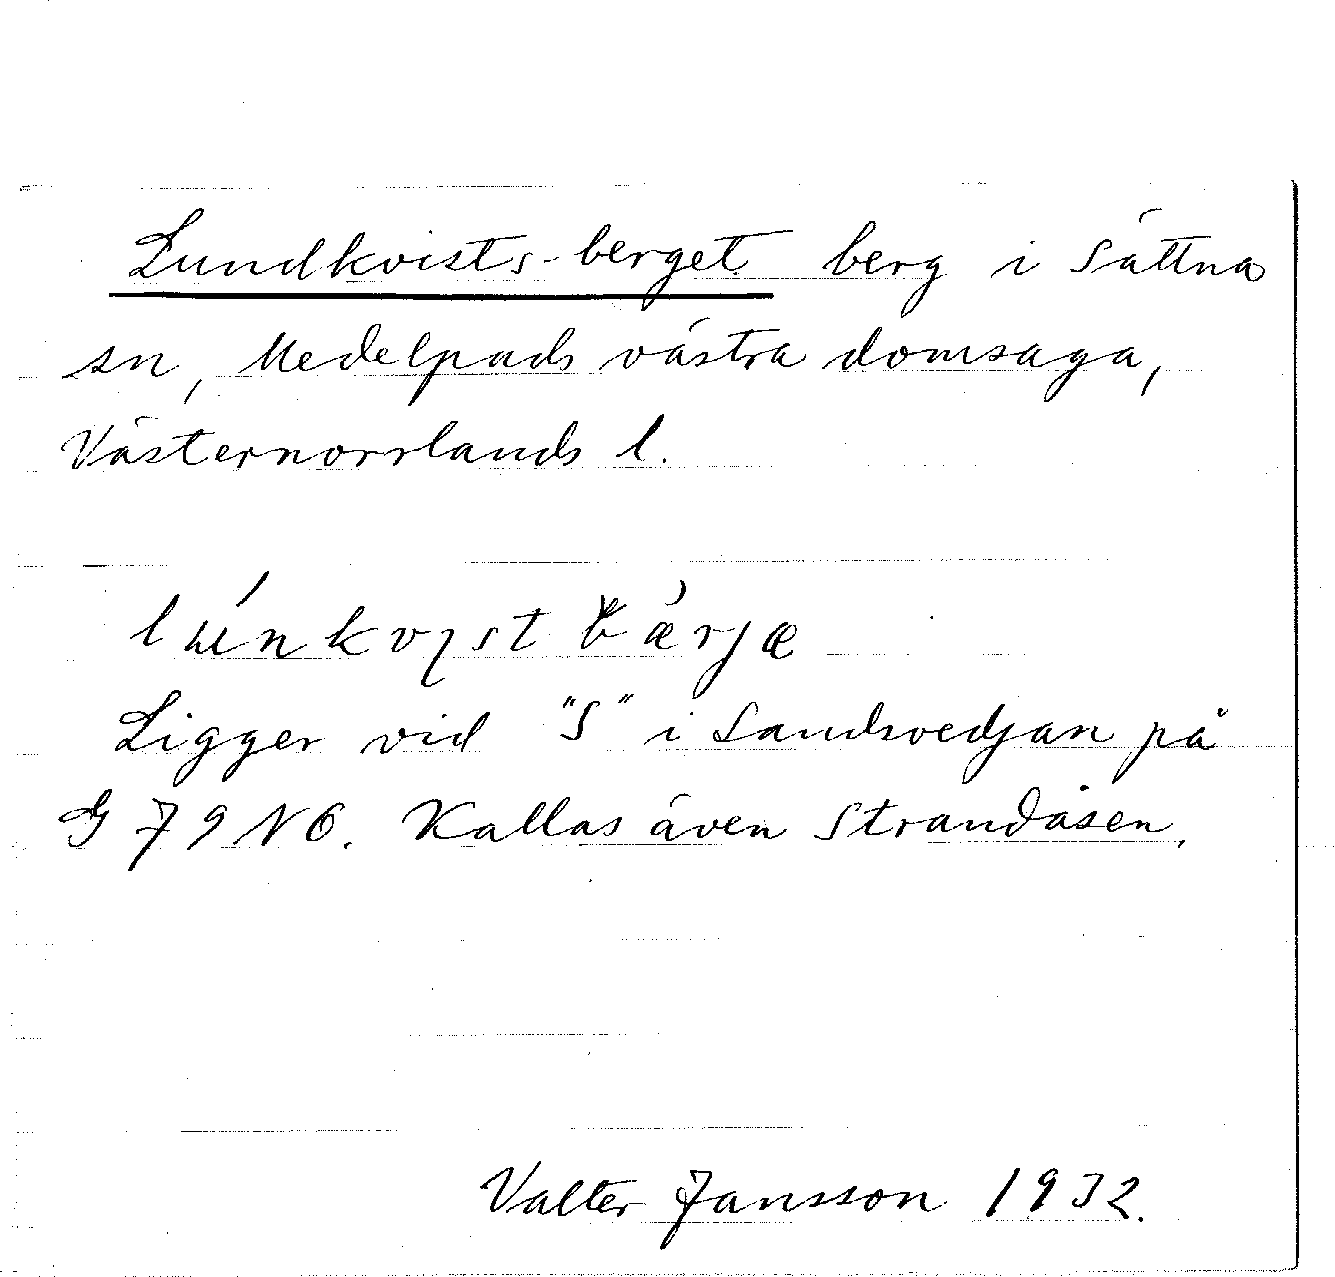 Lundkvists-berget berg i Sättna
sn, Medelpads västra domsaga,
Västernorrlands l.
Ligger vid "S" i Sandsvedjan på
G 79 NO. Kallas även Strandåsen.
Valter Jansson 1932.